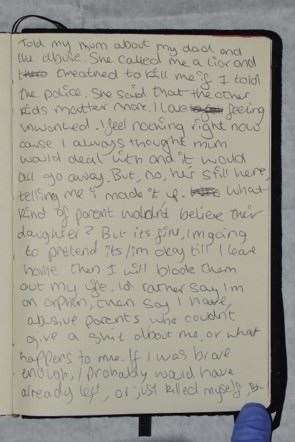 Told my mum about my dad, and
the abuse. She called me a liar and
threatned to kill me if I told
the police. She said that the other
kids matter more. I Love feeling
unwanted. I feel nothing right now
cause I always thought mum
would deal with and it would
all go away. But, no, he's still here,
telling me i made it up. What
kind of parent wouldn't believe their
daughter? But its fine, im going
to pretend its/im okay till I leave
home then I will block them
out my life. id rather say I'm
an orphen, then say I have,
abusive parents who couldn't
give a shit about me, or what
happens to me. If I was brave
enough, I probably would have
already left, or just killed myself,